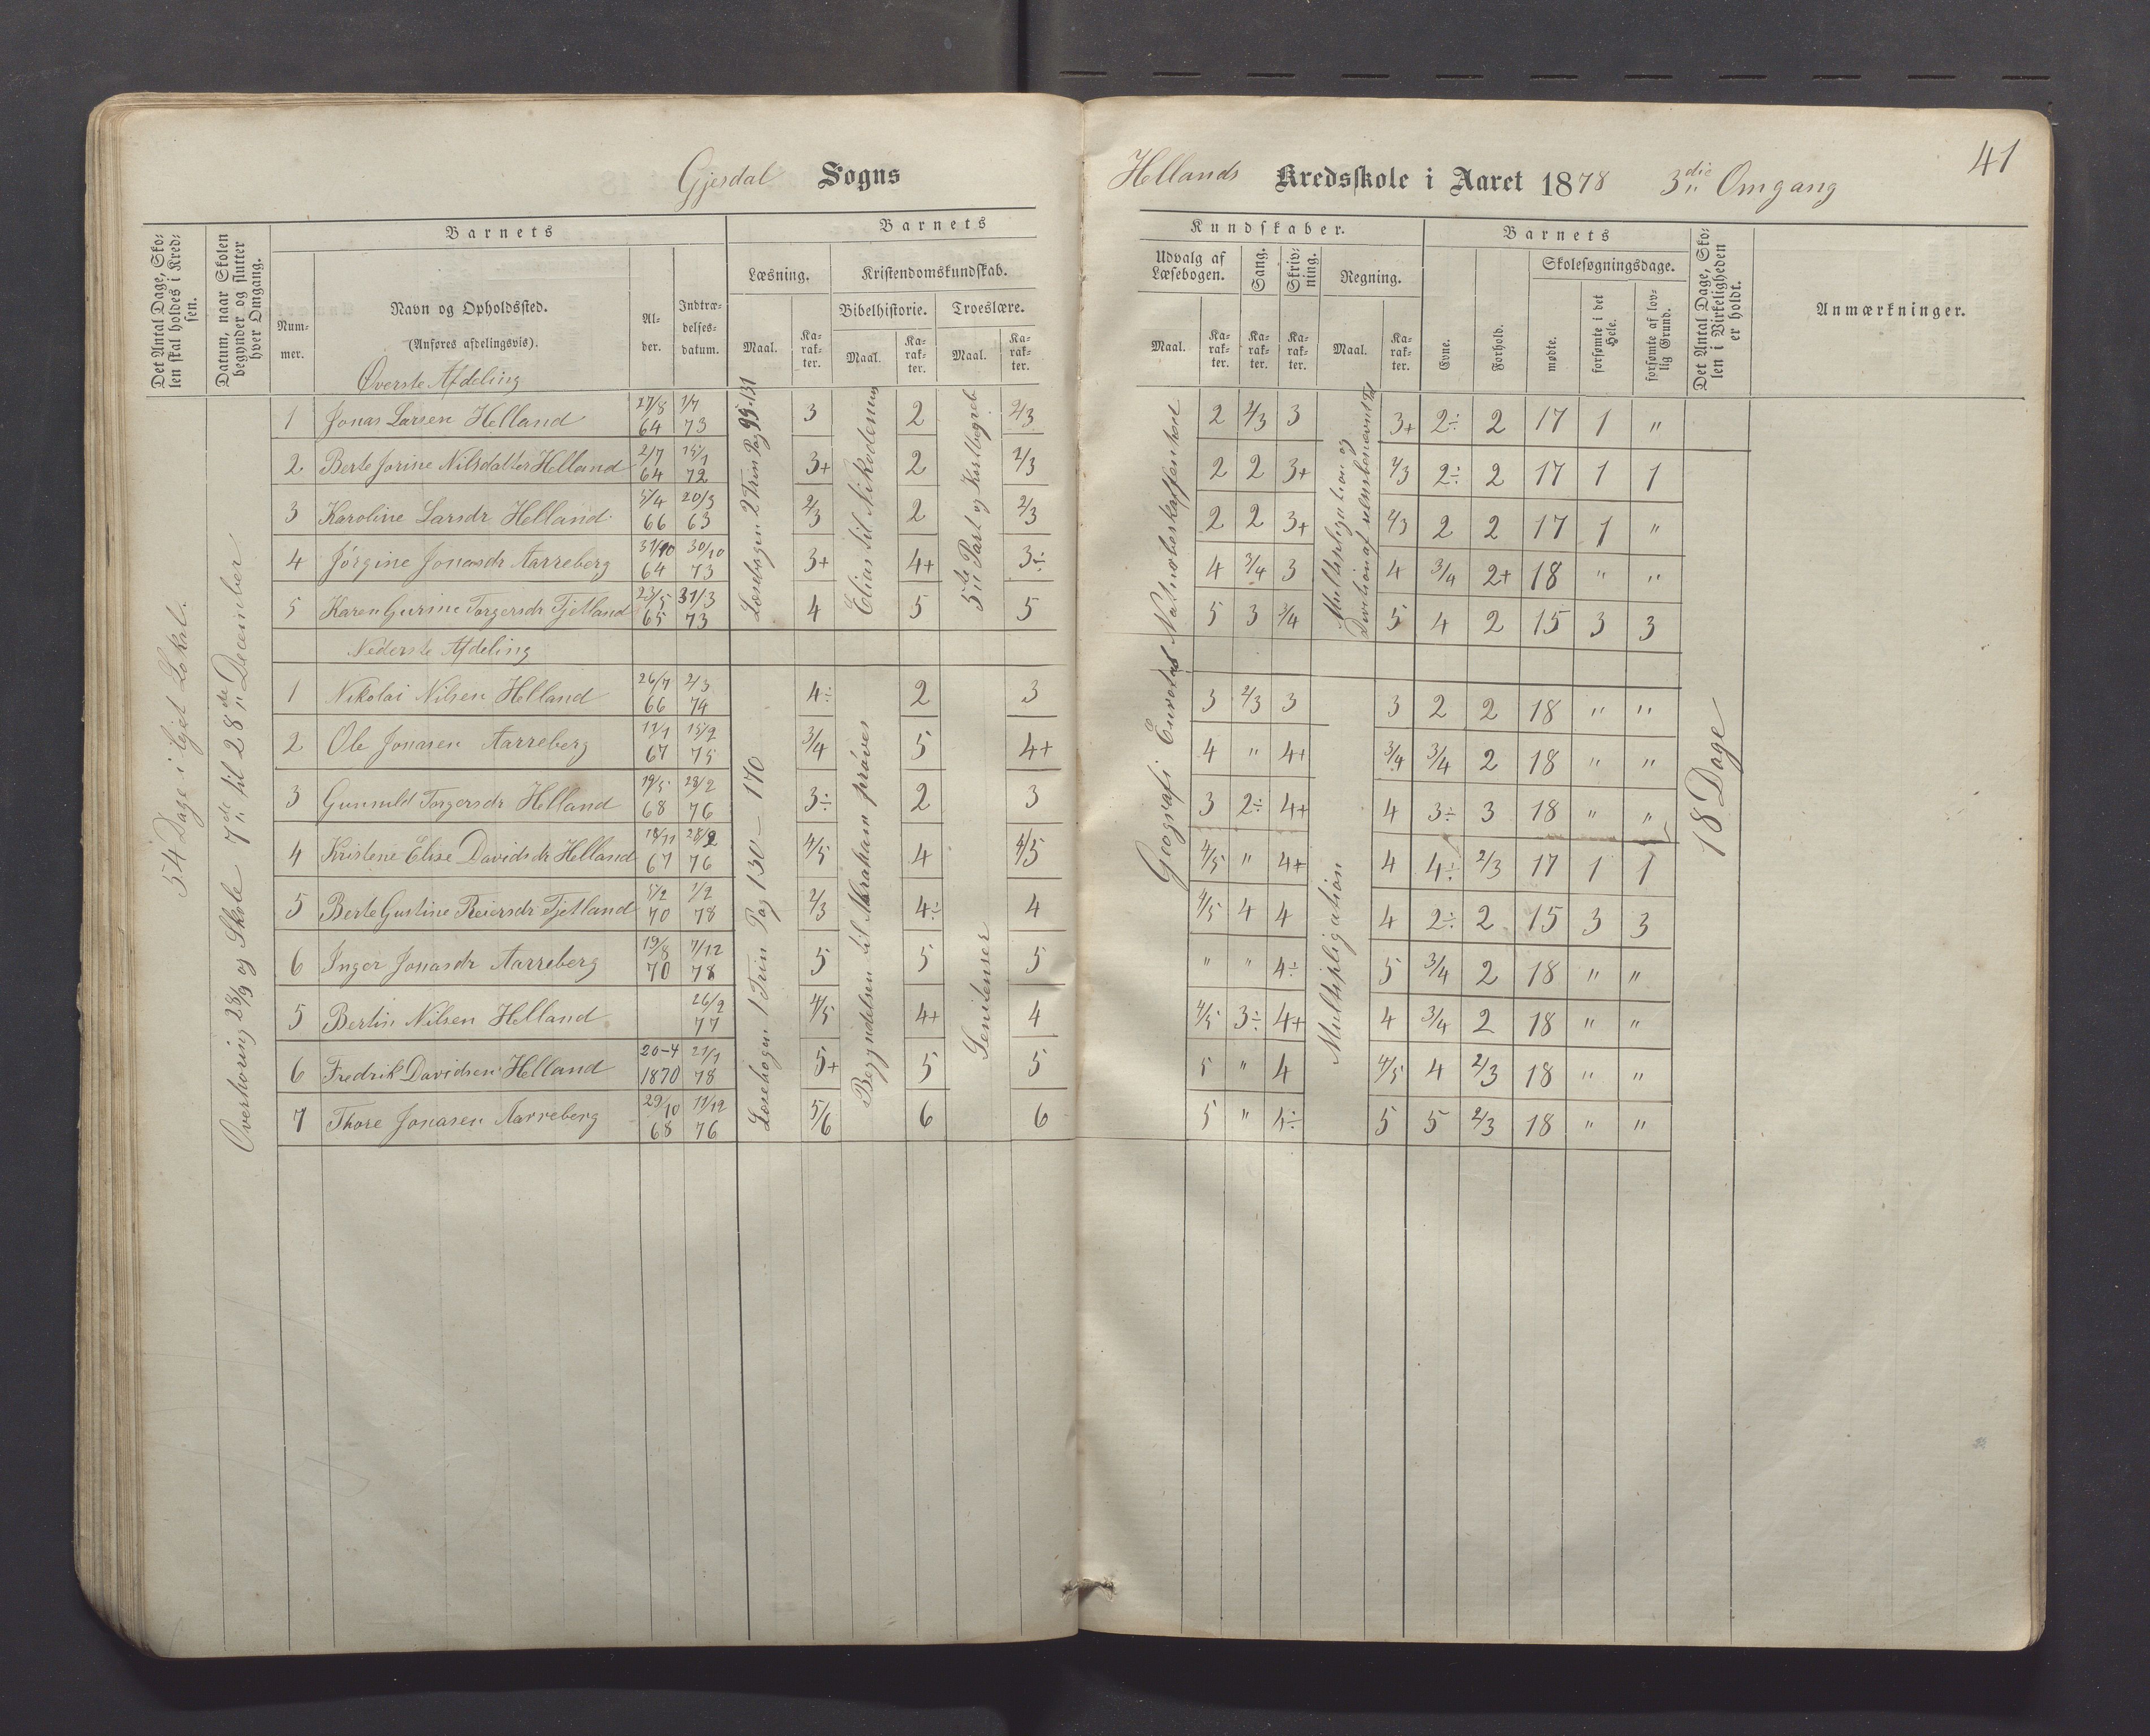 Gjesdal Sogns
Hellands Kredsskole i Aaret 1878 3die Omgang
41
Det Antal Dage, Skolen skal holdes i Kredsen.
Datum, naar Skolen begynder og slutter hver Omgang.
Barnets
Nummer.
Navn og Opholdssted.
(Anføres afdelingsvis).
Alder.
Indtrædelsesdatum.
Barnets
Kundskaber.
Læsning.
Kristendomskundskab.
Bibelhistorie.
Troeslære.
Maal. Karakter. Maal. Karakter. Maal. Karakter.
Udvalg af Læsebogen.
Sang.
Skrivning.
Regning.
Maal. Karakter. Karakter. Karakter. Maal. Karakter.
Barnets
Evne.
Forhold.
Skolesøgningsdage.
mødte.
forsømte i det Hele.
forsømte af lovlig Grund.
Det Antal Dage, Skolen i Virkeligheden er holdt.
Anmærkninger.
54 Dage i lejet Lokal.
Overhøring 28/9 og Skole 7de til 28de December
Øverste Afdeling
Læsebogen 2 Trin Pag 99-131
Elias til Nikodemus
5te Part og Kortbegreb
Geografi Europas Naturbeskaffenhed
Multipligation og
Division af ubenævnt Tal
1 Jonas Larsen Helland 27/8 64 1/7 73 3 2 2/3 2 2/3 3 3+ 2÷ 2 17 1 "
2 Berte Jorine Nilsdatter Helland 2/7 64 15/1 72 3+ 2 2/3 2 2 3+ 2/3 2÷ 2 17 1 1
3 Karoline Larsdr Helland 5/4 66 20/3 63 2/3 2 2/3 2 2 3+ 2/3 2 2 17 1 "
4 Jörgine Jonasdr Aarreberg 31/10 64 30/10 73 3+ 4+ 3÷ 4 3/4 3 4 3/4 2+ 18 " "
5 Karen Gurine Torgersdr Tjetland 23/5 65 31/3 73 4 5 5 5 3 3/4 5 4 2 15 3 3
Nederste Afdeling
Læsebogen 1 Trin Pag 130 - 170
Begyndelsen til Abraham prøves
Sentenser
Multipligation
18 Dage
1 Nikolai Nilsen Helland 26/7 66 2/3 74 4÷ 2 3 3 2/3 3 3 2 2 18 " "
2 Ole Jonasen Aarreberg 11/1 67 15/2 75 3/4 5 4+ 4 " 4+ 3/4 3/4 2 18 " "
3 Gunnuld Torgersdr Helland 19/5 68 28/2 76 3÷ 2 3 3 2÷ 4+ 4 3÷ 3 18 " "
4 Kristene Elise Davidsdr Helland 18/11 67 28/2 76 4/5 4 4/5 4/5 " 4+ 4 4÷ 2/3 17 1 1
5 Berte Gustine Reiersdr Tjetland 5/2 70 1/2 78 2/3 4÷ 4 4/5 4 4 4 2÷ 2 15 3 3
6 Inger Jonasdr Aarreberg 19/8 70 7/12 78 5 5 5 " " 4÷ 5 3/4 2 18 " "
5 Bertin Nilsen Helland 26/2 77 4/5 4+ 4 4/5 3÷ 4+ 4 3/4 2 18 " "
6 Fredrik Davidsen Helland 20-4 1870 21/1 78 5+ 5 5 5 " 4 4/5 4 2/3 18 " "
7 Thore Jonasen Aarreberg 29/10 68 11/12 76 5/6 6 6 5 " 4÷ 5 5 2/3 18 " "